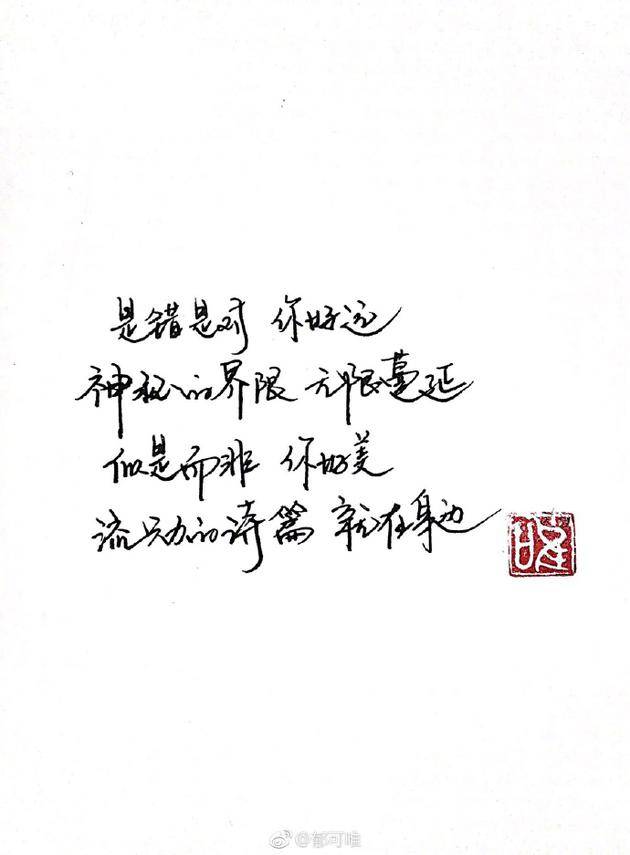 是错是对 你好远
神秘的界限 无限蔓延
似是而非 你好美
流动的诗篇 就在身边
唯
@郁可唯